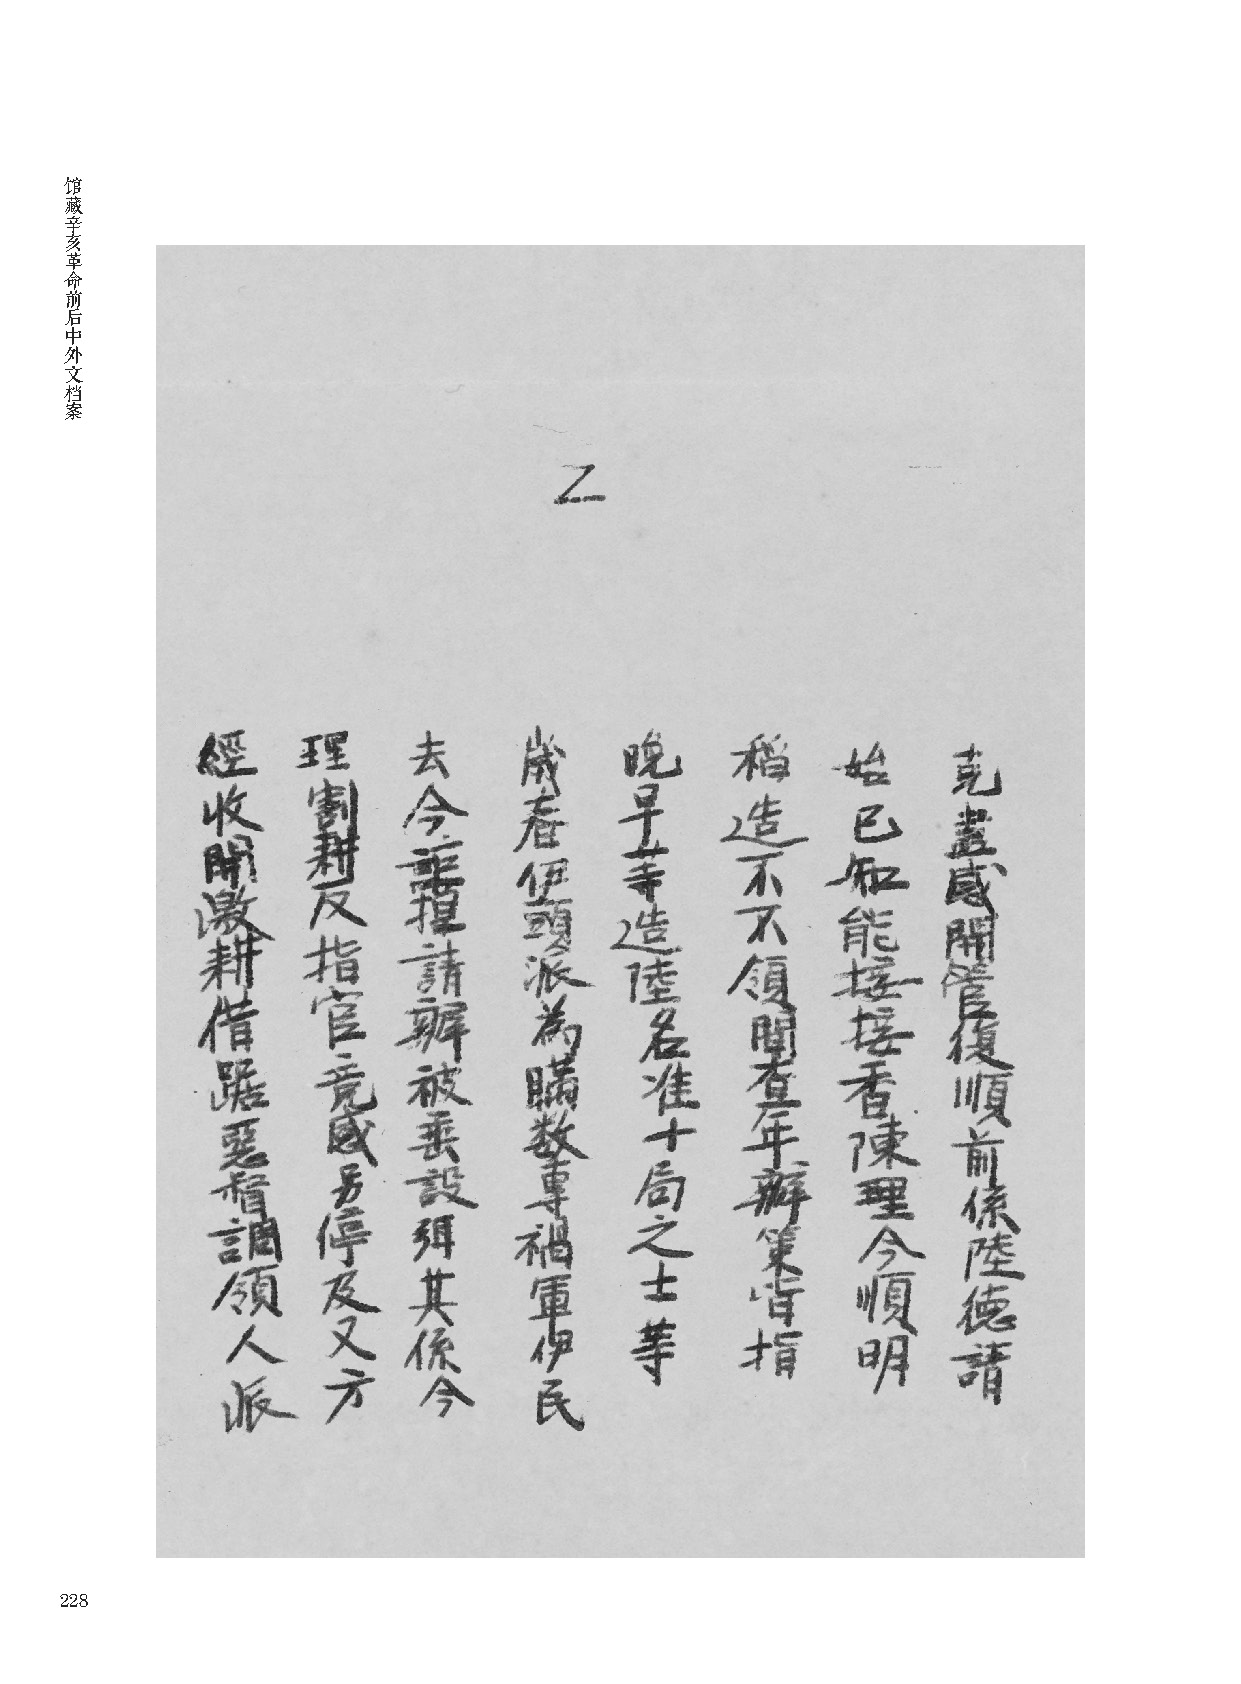 馆藏辛亥革命前后中外文档案
乙
克盡感開管復順前係陸德請
始已知能接接香陳理今順明
稻造不不領聞查年辦策皆指
晚早等造陸名准十局之士等
歲春伊頭派為瞞数專禍軍伊民
去今詎擅請辦被垂設弭其係今
理割耕反指官竟感另停及又方
經收開激耕借踞惡督調領人派
228